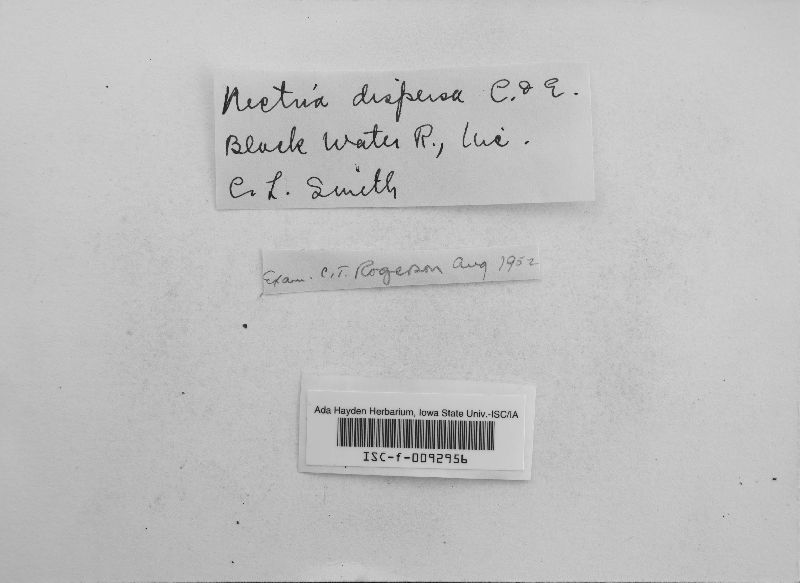 Nectria dispersa C. & E.
Black Water R.,
C. L. Smith
Exam. C.T. Rogerson Aug 1952
Ada Hayden Herbarium, Iowa State Univ.-ISC/IA
ISC-f-0092956